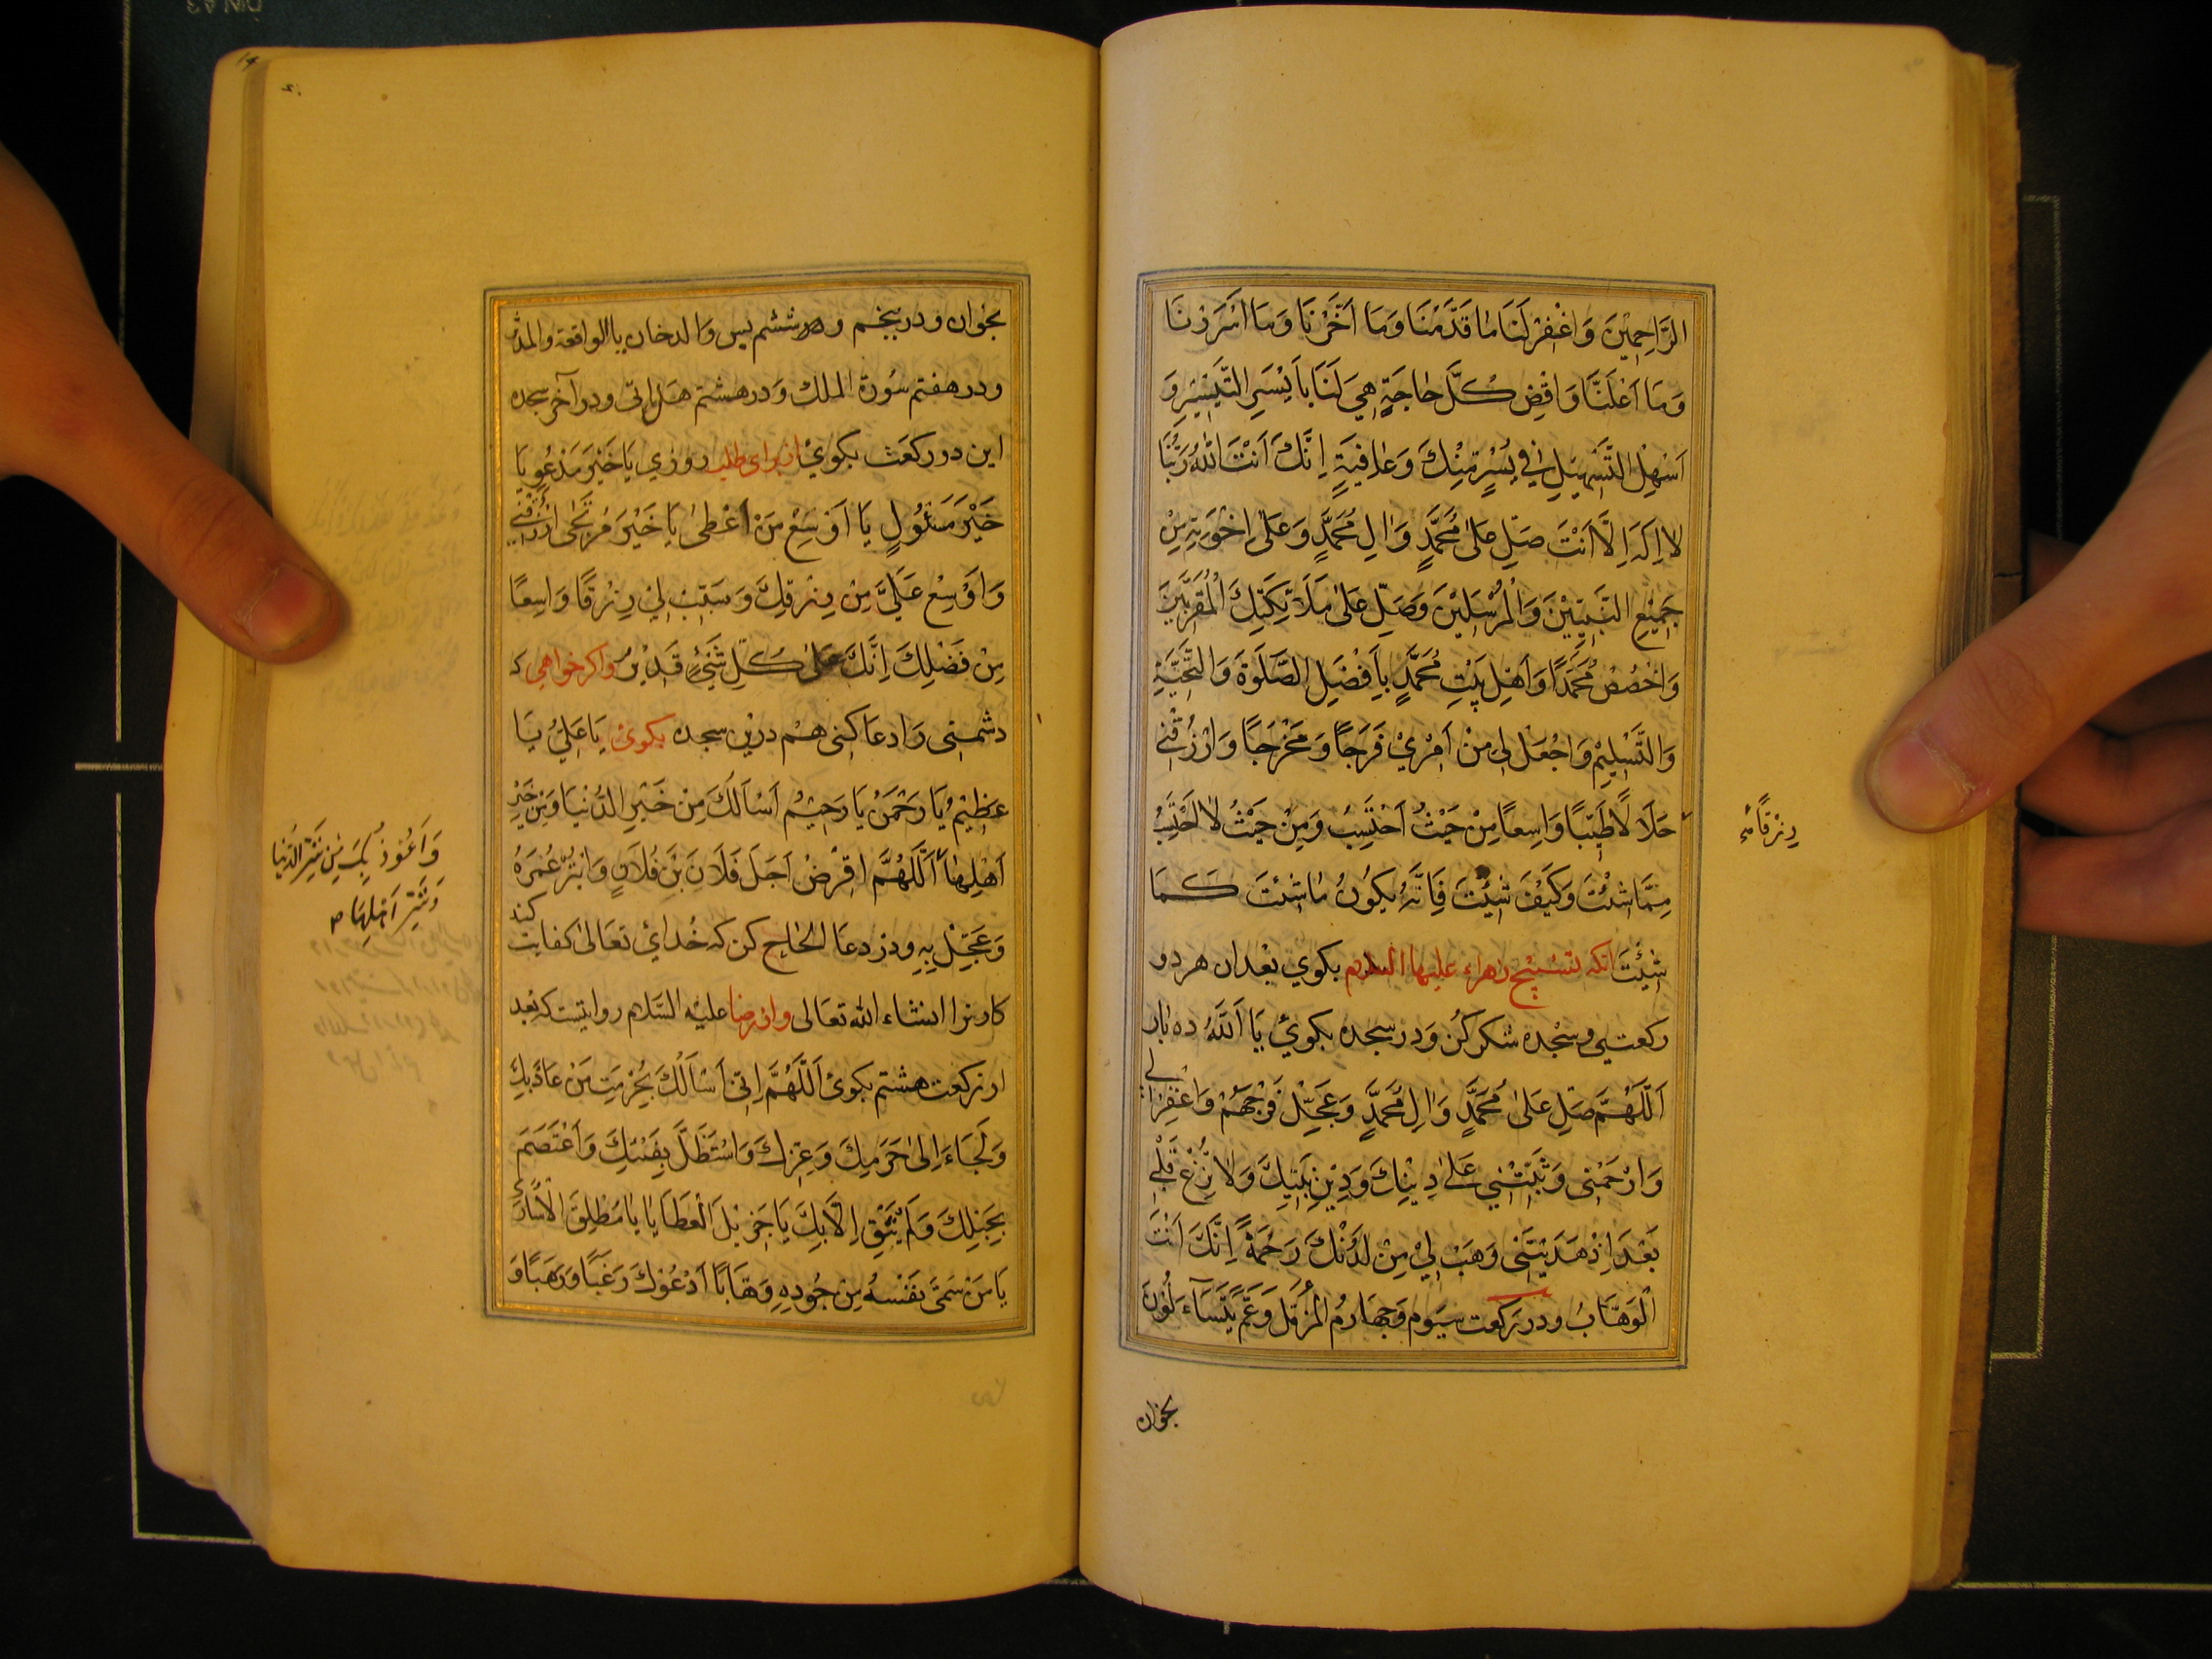 الرَّاحِمِيْنَ وَاغْفِرْ لَنَا مَا قَدَّمْنَا وَمَا اَخَّرْنَا وَمَا اَسْرَرْنَا
وَمَا اَعْلَنَّا وَاقْضِ كُلَّ حَاجَةٍ هِيَ لَنَا بِاَيْسَرِ التَّيْسِيْرِ وَ
اَسْهِلِ التَّسْهِيْلِ فِي يُسْرٍ مِنْكَ وَعَافِيَةٍ اِنَّكَ اَنْتَ اللهُ رَبُّنَا
لَا اِلَهَ اِلَّا اَنْتَ صَلِّ عَلٰى مُحَمَّدٍ وَاٰلِ مُحَمَّدٍ وَعَلٰى اِخْوَتِهِ مِنْ
جَمِيْعِ النَّبِيِّيْنَ وَالْمُرْسَلِيْنَ وَصَلِّ عَلٰى مَلَائِكَتِكَ الْمُقَرَّبِيْنَ
وَاخْصُصْ مُحَمَّدًا وَاَهْلِ بَيْتِ مُحَمَّدٍ بِاَفْضَلِ الصَّلٰوةِ وَالتَّحِيَّةِ
وَالتَّسْلِيْمِ وَاجْعَلْ لِي مِنْ اَمْرِيْ فَرَجًا وَمَخْرَجًا وَارْزُقْنِي
حَلَالًا طَيِّبًا وَاسِعًا مِنْ حَيْثُ اَحْتَسِبُ وَمِنْ حَيْثُ لَا اَحْتَسِبُ
رِزْقًا
مِمَّا شِئْتَ وَكَيْفَ شِئْتَ فَاِنَّهُ يَكُوْنُ مَا شِئْتَ كَمَا
شِئْتَ انكه تسبيح زهراء عليها السلام بكوي بعد ان هر دو
ركعتي و سجده شكر كن و در سجده بكوئ يَا اَللهُ ده بار
اَللّٰهُمَّ صَلِّ عَلٰى مُحَمَّدٍ وَاٰلِ مُحَمَّدٍ وَعَجِّلْ فَرَجَهُمْ وَاغْفِرْ لِي
وَارْحَمْنِي وَثَبِّتْنِي عَلٰى دِيْنِكَ وَدِيْنِ نَبِيِّكَ وَلَا تُزِغْ قَلْبِي
بَعْدَ اِذْ هَدَيْتَنِي وَهَبْ لِيْ مِنْ لَدُنْكَ رَحْمَةً اِنَّكَ اَنْتَ
الْوَهَّابُ و در ركعت سيوم و چهارم المزمل وعَمَّ يَتَسَآءَلُوْنَ
بخوان
بخوان و در پنجم و در ششم يس والدخان يا الواقعة والمدثر
و در هفتم سورة الملك و در هشتم هل اتى و در آخر سجده
اين دو ركعت بكوئ از براى طلب روزي يَا خَيْرَ مَدْعُوٍّ يَا
خَيْرَ مَسْئُوْلٍ يَا اَوْسَعَ مَنْ اَعْطٰى يَا خَيْرَ مُرْتَجٰى ارْزُقْنِي
وَاَوْسِعْ عَلَيَّ مِنْ رِزْقِكَ وَسَبِّبْ لِيْ رِزْقًا وَاسِعًا
مِنْ فَضْلِكَ اِنَّكَ عَلٰى كُلِّ شَيْءٍ قَدِيْرٌ واكر خواهي كه
دشمنى را دعا كنى هم درين سجده بكوئ يَا عَلِيُّ يَا
عَظِيْمُ يَا رَحْمٰنُ يَا رَحِيْمُ اَسْاَلُكَ مِنْ خَيْرِ الدُّنْيَا وَمِنْ خَيْرِ
وَاَعُوذُ بِكَ مِنْ شَرِّ الدُّنْيَا
وَشَرِّ اَهْلِهَا
اَهْلِهَا اَللّٰهُمَّ اقْرِضْ اَجَلَ فُلَانَ بْنَ فُلَانٍ وَابْتُرْ عُمَرَهُ
وَعَجِّلْ بِهِ و در دعا الحاح كن كه خداي تعالى كفايت كند
كار ترا انشاء الله تعالى واز رضا عليه السلام روايتست كه بعد
از ركعت هشتم بكوئ اَللّٰهُمَّ اِنِّي اَسْاَلُكَ بِحُرْمَةِ مَنْ عَاذَ بِكَ
وَلَجَاءَ اِلٰى حَرَمِكَ وَعِزِّكَ وَاسْتَظَلَّ بِفَيْئِكَ وَاعْتَصَمَ
بِحَبْلِكَ وَلَمْ يَثِقْ اِلَّا بِكَ يَا جَزِيْلَ الْعَطَايَا يَا مُطْلِقَ الْاُسَارٰى
يَا مَنْ سَمّٰى نَفْسَهُ مِنْ جُوْدِهِ وَهَّابًا اَدْعُوْكَ رَغَبًا وَرَهَبًا وَ